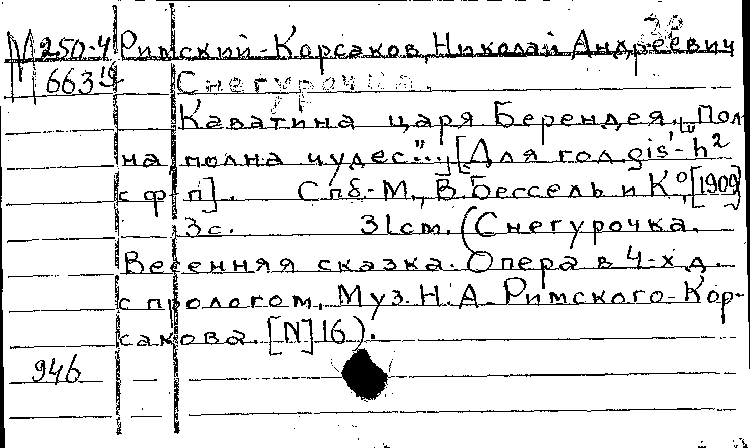 30
М 250-4 Римский-Корсаков, Николай Андреевич
663 Снегурочка.
Каватина царя Берендея. "Пол
на полна чудес"... [Для гол. gis'-h²
с ф-п]. Спб.-М., В. Бессель и К°, [1909]
3с. 31cm. (Снегурочка.
Весенняя сказка. Опера в 4-х д.
с прологом. Муз. Н.А. Римского-Кор-
сакова. [N] 16).
946